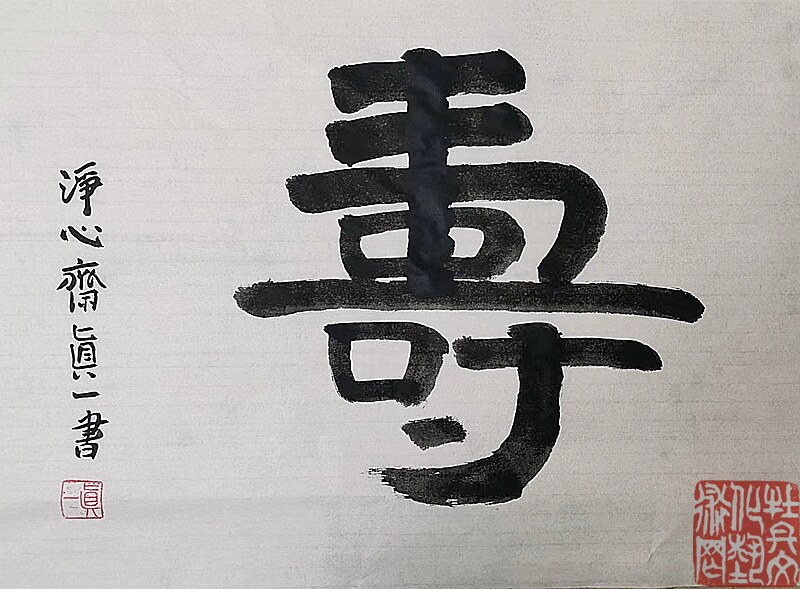 壽
淨心齋眞一書
眞一